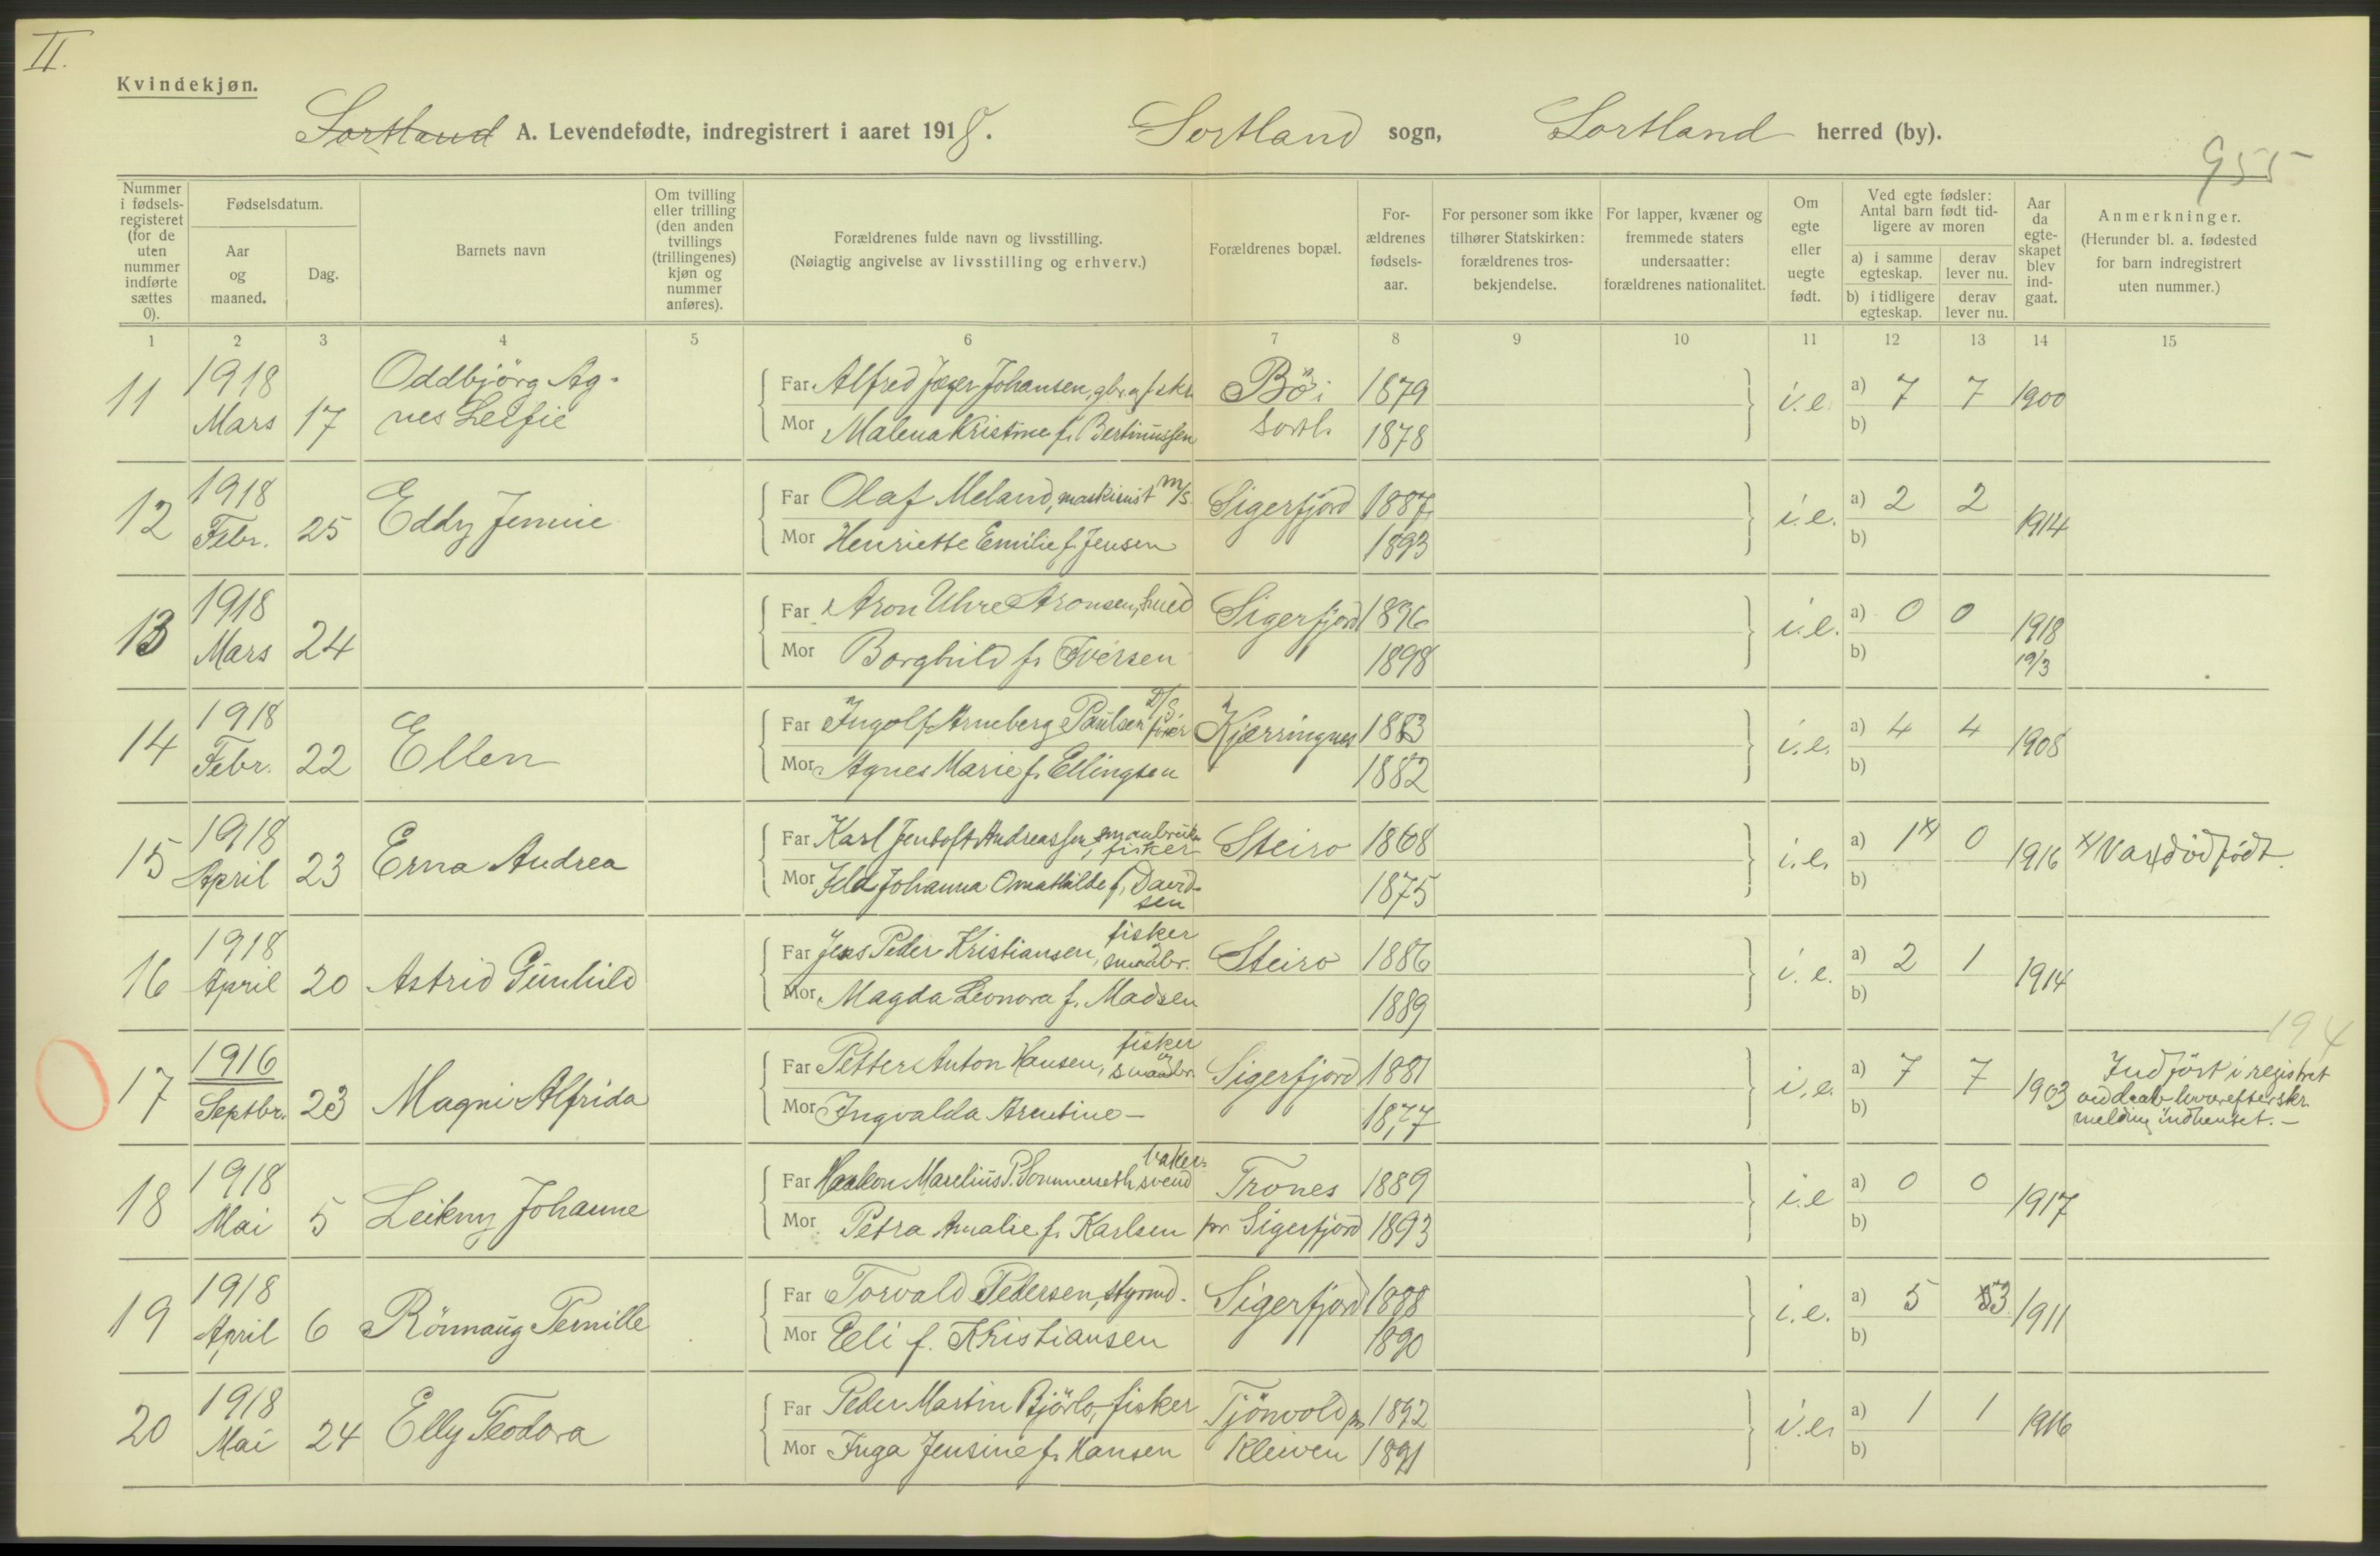 II.
Kvindekjøn.
Sortland A. Levendefødte, indregistrert i aaret 1918. Sortland sogn, Sortland herred (by).
955
Nummer i fødsels-registeret (for de uten nummer indførte sættes 0).
Fødselsdatum.
Aar og maaned.
Dag.
Barnets navn
Om tvilling eller trilling (den anden tvillings (trillingenes) kjøn og nummer anføres).
Forældrenes fulde navn og livsstilling.
(Nøiagtig angivelse av livsstilling og erhverv.)
Forældrenes bopæl.
For-ældrenes fødsels-aar.
For personer som ikke tilhører Statskirken: forældrenes tros-bekjendelse.
For lapper, kvæner og fremmede staters undersaatter: forældrenes nationalitet.
Om egte eller uegte født.
Ved egte fødsler: Antal barn født tid-ligere av moren
a) i samme egteskap.
derav lever nu.
b) i tidligere egteskap.
derav lever nu.
Aar da egte-skapet blev ind-gaat.
Anmerkninger.
(Herunder bl. a. fødested for barn indregistrert uten nummer.)
1 2 3 4 5 6 7 8 9 10 11 12 13 14 15
11 1918 Mars 17 Oddbjörg Ag-
nes Leifie
Far Alfred Jæger Johansen, gbr. og fisker Bö i 1879 i.e. a) 7 7 1900
Mor Malena Kristine f. Bertinussen Sortl. 1878 b)
12 1918 Febr. 25 Eddy Jennie
Far Olaf Meland, maskinist m/s. Sigerfjord 1887 i.e. a) 2 2 1914
Mor Henriette Emilie f. Jensen 1893 b)
13 1918 Mars 24
Far Aron Uhre Aronsen, smed Sigerfjord 1896 i.e. a) 0 0 1918
Mor Borghild f. Iversen 1898 b) 19/3
14 1918 Febr. 22 Ellen
Far Ingolf Arneberg Paulsen D/S. fører Kjerringnes 1883 i.e. a) 4 4 1908
Mor Agnes Marie f. Ellingsen 1882 b)
15 1918 April 23 Erna Andrea
Far Karl Jentoft Andreassen, smaabruker, fisker Steiro 1868 i.e. a) 1x) 0 1916 x) Var dödfödt.
Mor Johanna f. David-
sen 1875 b)
16 1918 April 20 Astrid Gunhild
Far Jens Peder Kristiansen, fisker smaabr. Steiro 1886 i.e. a) 2 1 1914
Mor Magda Leonora f. Madsen 1889 b)
194
17 1916 Septbr. 23 Magni Alfrida
Far Petter Anton Hansen, fisker og smaabr. Sigerfjord 1881 i.e. a) 7 7 1903 Indfört i registret
Mor Ingvalda Arentine - 1877 b) ved daab hvorefter skr.
melding indhentet. -
18 1918 Mai 5 Leikny Johanne
Far Haakon Marelius P. Sommerseth, baker-svend Trones 1889 i.e a) 0 0 1917
Mor Petra Amalie f. Karlsen pr. Sigerfjord 1893 b)
19 1918 April 6 Rönnaug Pernille
Far Torvald Pedersen, styrmd. Sigerfjord 1888 i.e. a) 5 3 1911
Mor Eli f. Kristiansen 1890 b)
20 1918 Mai 24 Elly Teodora
Far Peder Martin Björlo, fisker Tjönvold pr. 1892 i.e. a) 1 1 1916
Mor Inga Jensine f. Hansen Kleiven 1891 b)